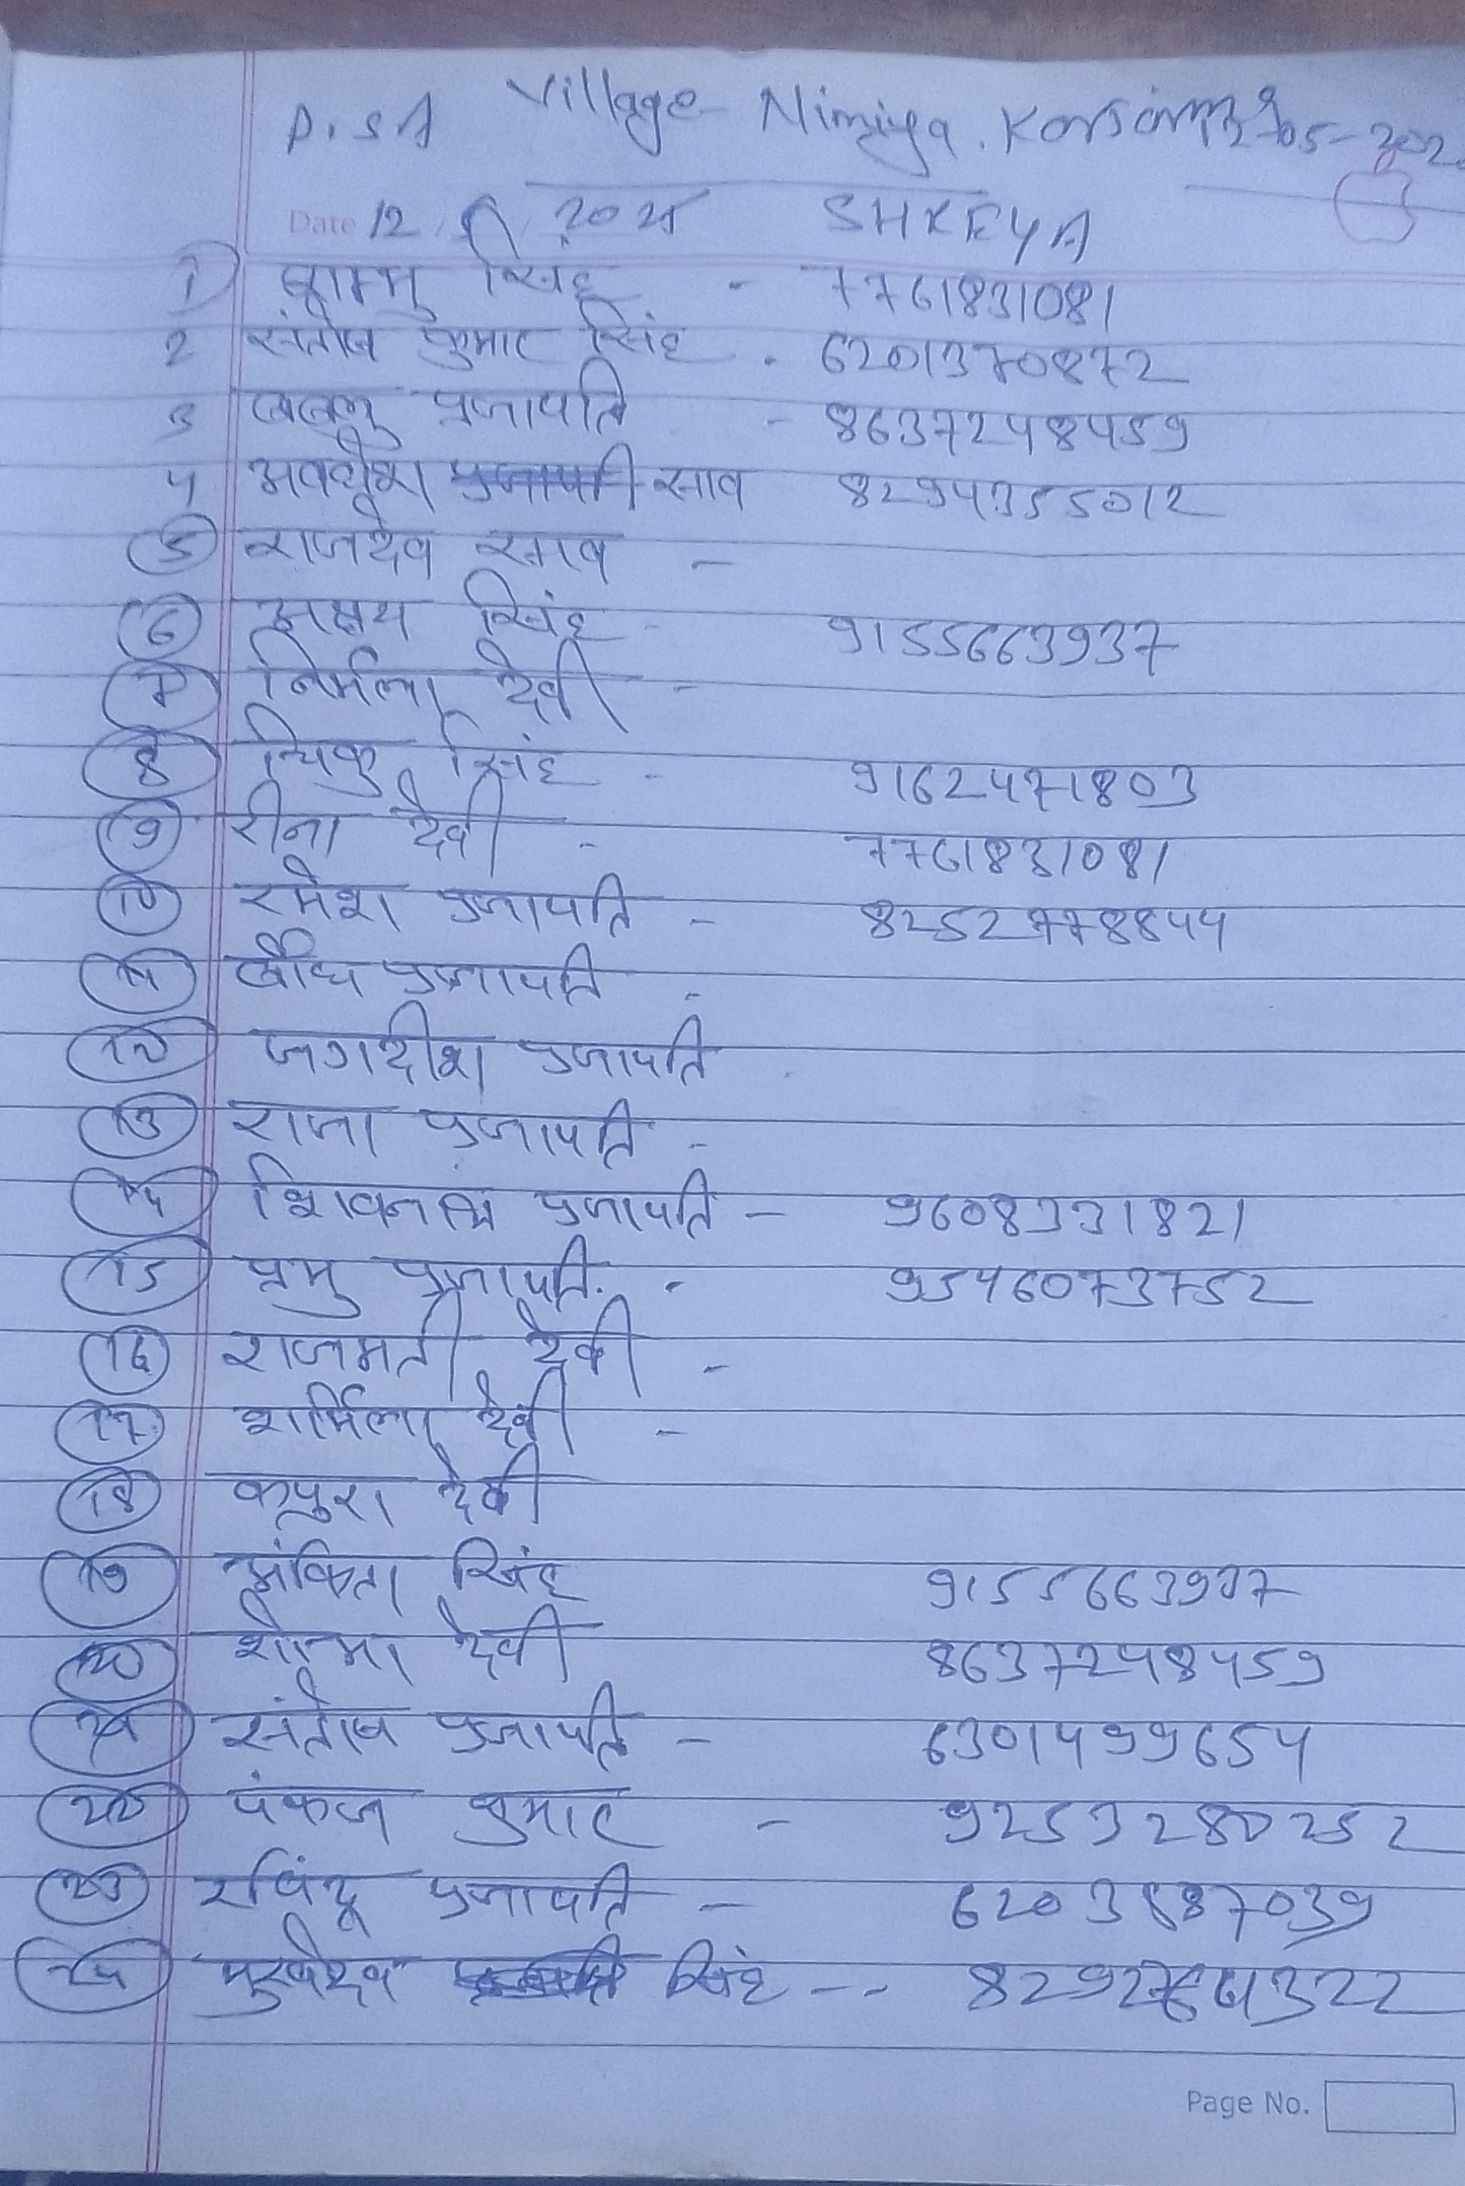 P.S.A Village Nimiya. 12-05-202
Date 12 2025 SHREYA
1 सिंह - 7761831081
2 संतोष कुमार सिंह . 6201370872
3 बबलु प्रजापति - 8637248459
4 अवधेश प्रजापती साव 8294355012
5 राजदेव साव -
6 अक्षय सिंह - 9155663937
7 निर्मला देवी -
8 सिंह - 9162471803
9 रीना देवी - 7761831081
10 रमेश प्रजापति - 8252778844
11 प्रजापति -
12 जगदीश प्रजापति
13 राजा प्रजापति -
14 प्रजापति - 9608331821
15 प्रभु प्रजापति - 9546073752
16 राजमती देवी -
17 शर्मिला देवी -
18 कपुरा देवी
19 अंकिता सिंह 9155663937
20 देवी 8637248459
21 संतोष प्रजापति - 6301499654
22 पंकज कुमार - 9253280252
23 रविंद्र प्रजापति - 6203887039
24 सिंह --
Page No.